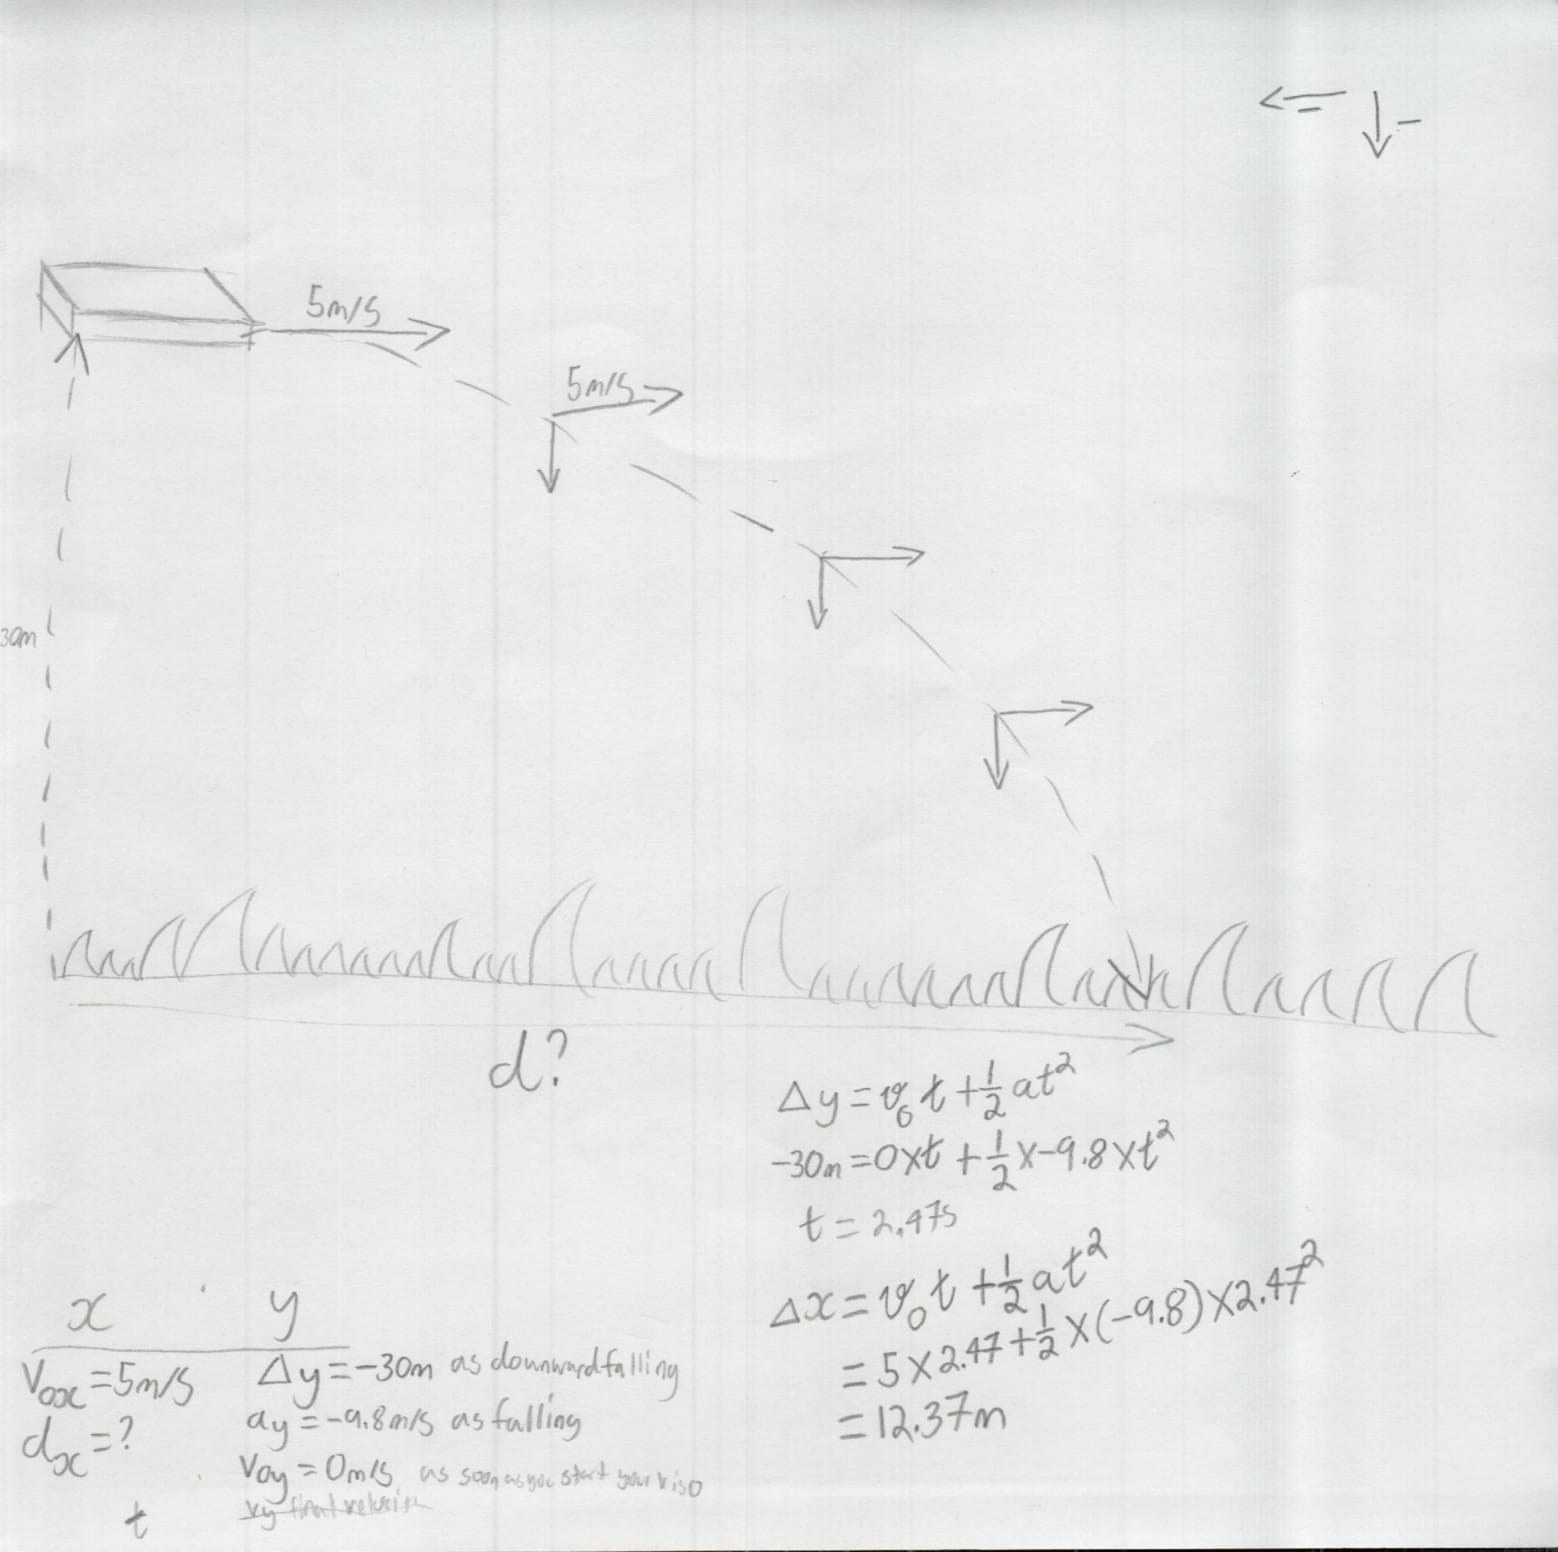 ← - ↓ -
5m/s
5m/s
30m
d?
Δy = v₀t + 1/2 at²
-30m = 0xt + 1/2 x -9.8 x t²
t = 2.47s
Δx = v₀t + 1/2 at²
= 5 x 2.47 + 1/2 x (-9.8) x 2.47²
= 12.37m
x y
V₀ₓ = 5m/s Δy = -30m as downward falling
dₓ = ? ay = -9.8m/s as falling
V₀y = 0m/s as soon as you start your v is 0
vy final
t